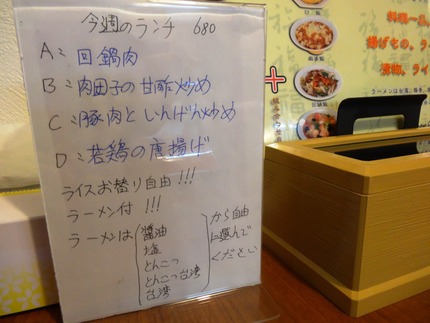 今週のランチ 680
A: 回鍋肉
B: 肉団子の甘酢炒め
C: 豚肉といんげん炒め
D: 若鶏の唐揚げ
ライスお替り自由!!!
ラーメン付!!!
ラーメンは
醤油
塩
とんこつ
とんこつ台湾
台湾
から自由
に選んで
ください
料理一品
揚げもの、ラー
漬物、ライ
+
福